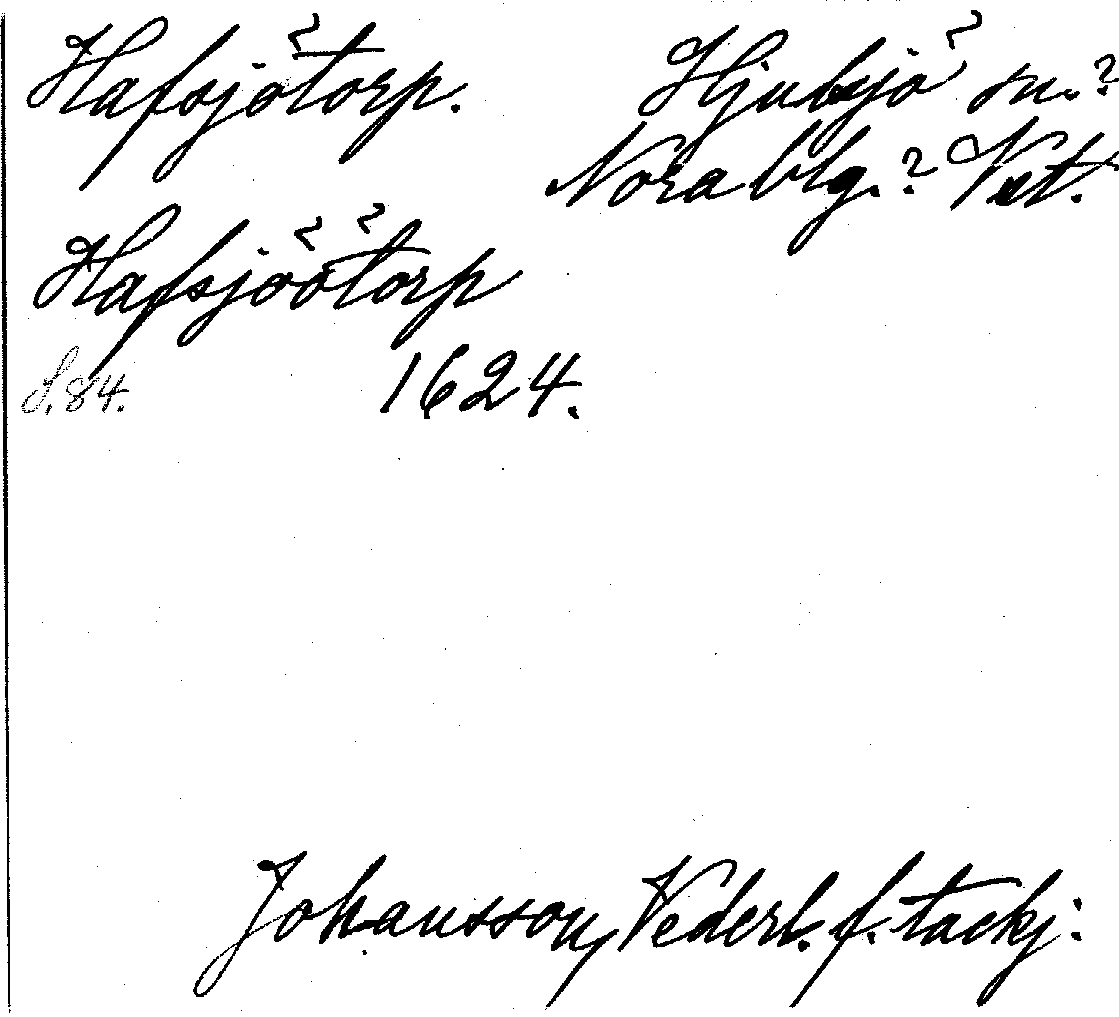 Hafsjötorp. Hjulsjö sn.?
Nora blg.? Vst.
Hafsjöötorp
S. 84. 1624.
Johansson, Vederl. f. tackj: